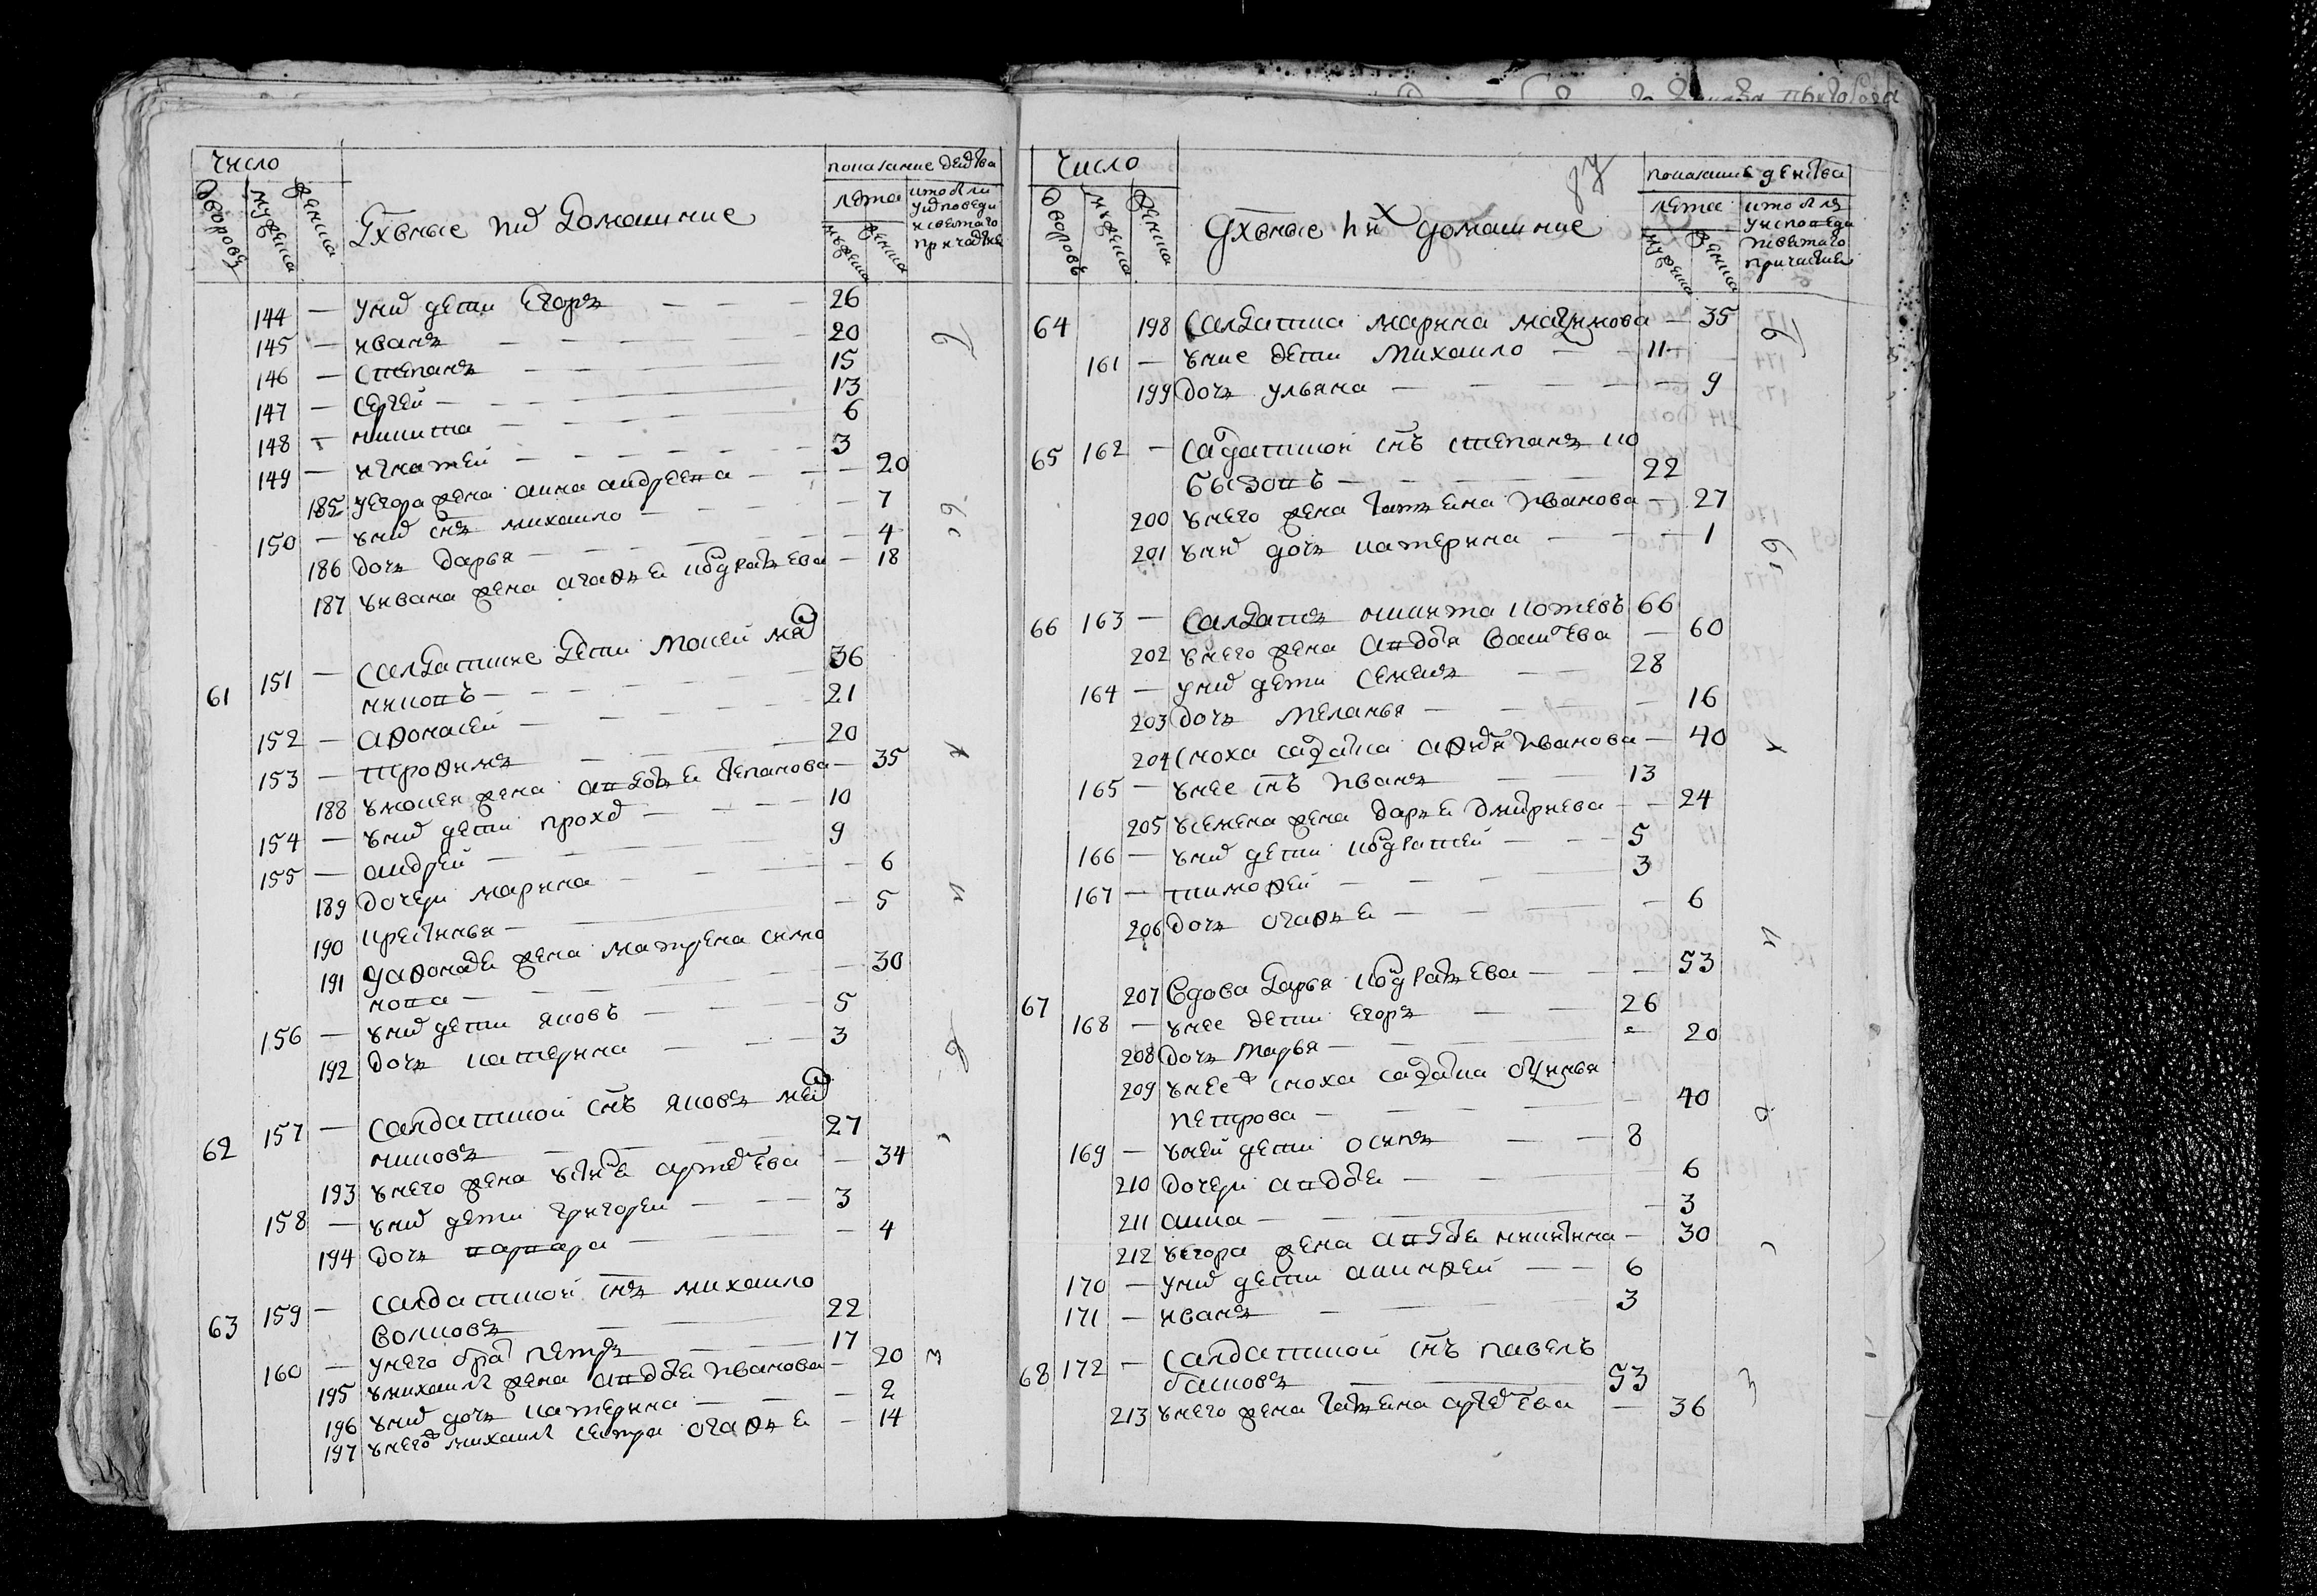 Число
показание действа
Дворовъ
мужеска
женска
Дхвные и их домашние
лета
мужеска
женска
кто был
у исповеди
и святаго
причастия
144 — у них дети Егоръ — — — 26
145 — иванъ — — — 20
146 — степанъ — — — 15
147 — сергей — — — 13
148 — никита — — — 6
149 — игнатей — — — 3
185 у егора жена анна андреева — — 20
150 — у них снъ михаило — — 7
186 дочь дарья — — — 4
187 у ивана жена агафья кодратьева — 18
61 151 — салдатцкие дети мокей
36
152 — афонасей — — — 21
153 — трофимъ — — — 20
188 у мокея жена авдотья степанова — 35
154 — у них дети прохор — — 10
155 — андрей — — — 9
189 дочери марина — — — 6
190 крестинья — — — 5
191 у афонасья жена матрена симо
нова — — — 30
156 — у них дети яковъ — — 5
192 дочь катерина — — — 3
62 157 — салдатцкой снъ яковъ
27
193 у него жена устинья артемьева — 34
158 — у них дети григорей — — 3
194 дочь варвара — — — 4
63 159 — салдатцкой снъ михаило
волковъ — — 22
160 — у него брат петръ — — 17
195 у михаила жена авдотья иванова — 20
196 у них дочь катерина — — 2
197 у него михаила сестра агафья — 14
87
Число
показание действа
Дворовъ
мужеска
женска
Дхвные и их домашние
лета
мужеска
женска
кто был
у исповеди
и святаго
причастия
64 198 салдатка марина — 35
161 — у ние дети михаило — — 11
199 дочь ульяна — — — 9
65 162 — садатцкой снъ степанъ ко
22
200 у него жена татьяна иванова — 27
201 у них дочь катерина — — 1
66 163 — салдатъ никита котевъ 66
202 у него жена авдотья васильева — 60
164 — у них дети семенъ — — 28
203 дочь меланья — — — 16
204 сноха садатка афимья иванова — 40
165 — у нее снъ иванъ — — 13
205 у семена жена дарья дмитриева — 24
166 — у них дети кодратей — — 5
167 — тимофей — — — 3
206 дочь агафья — — — 6
67 207 вдова дарья кодратьева — — 53
168 — у нее дети егоръ — — 26
208 дочь марья — — — 20
209 у нее сноха садатка
петрова — — — 40
169 — у ней дети осипъ — — 8
210 дочери авдотья — — — 6
211 анна — — — 3
212 у егора жена авдотья никитина — 30
170 — у них дети акимфей — — 6
171 — иванъ — — — 3
68 172 — салдатцкой снъ павелъ
баковъ — — 53
213 у него жена татьяна артемьева — 36